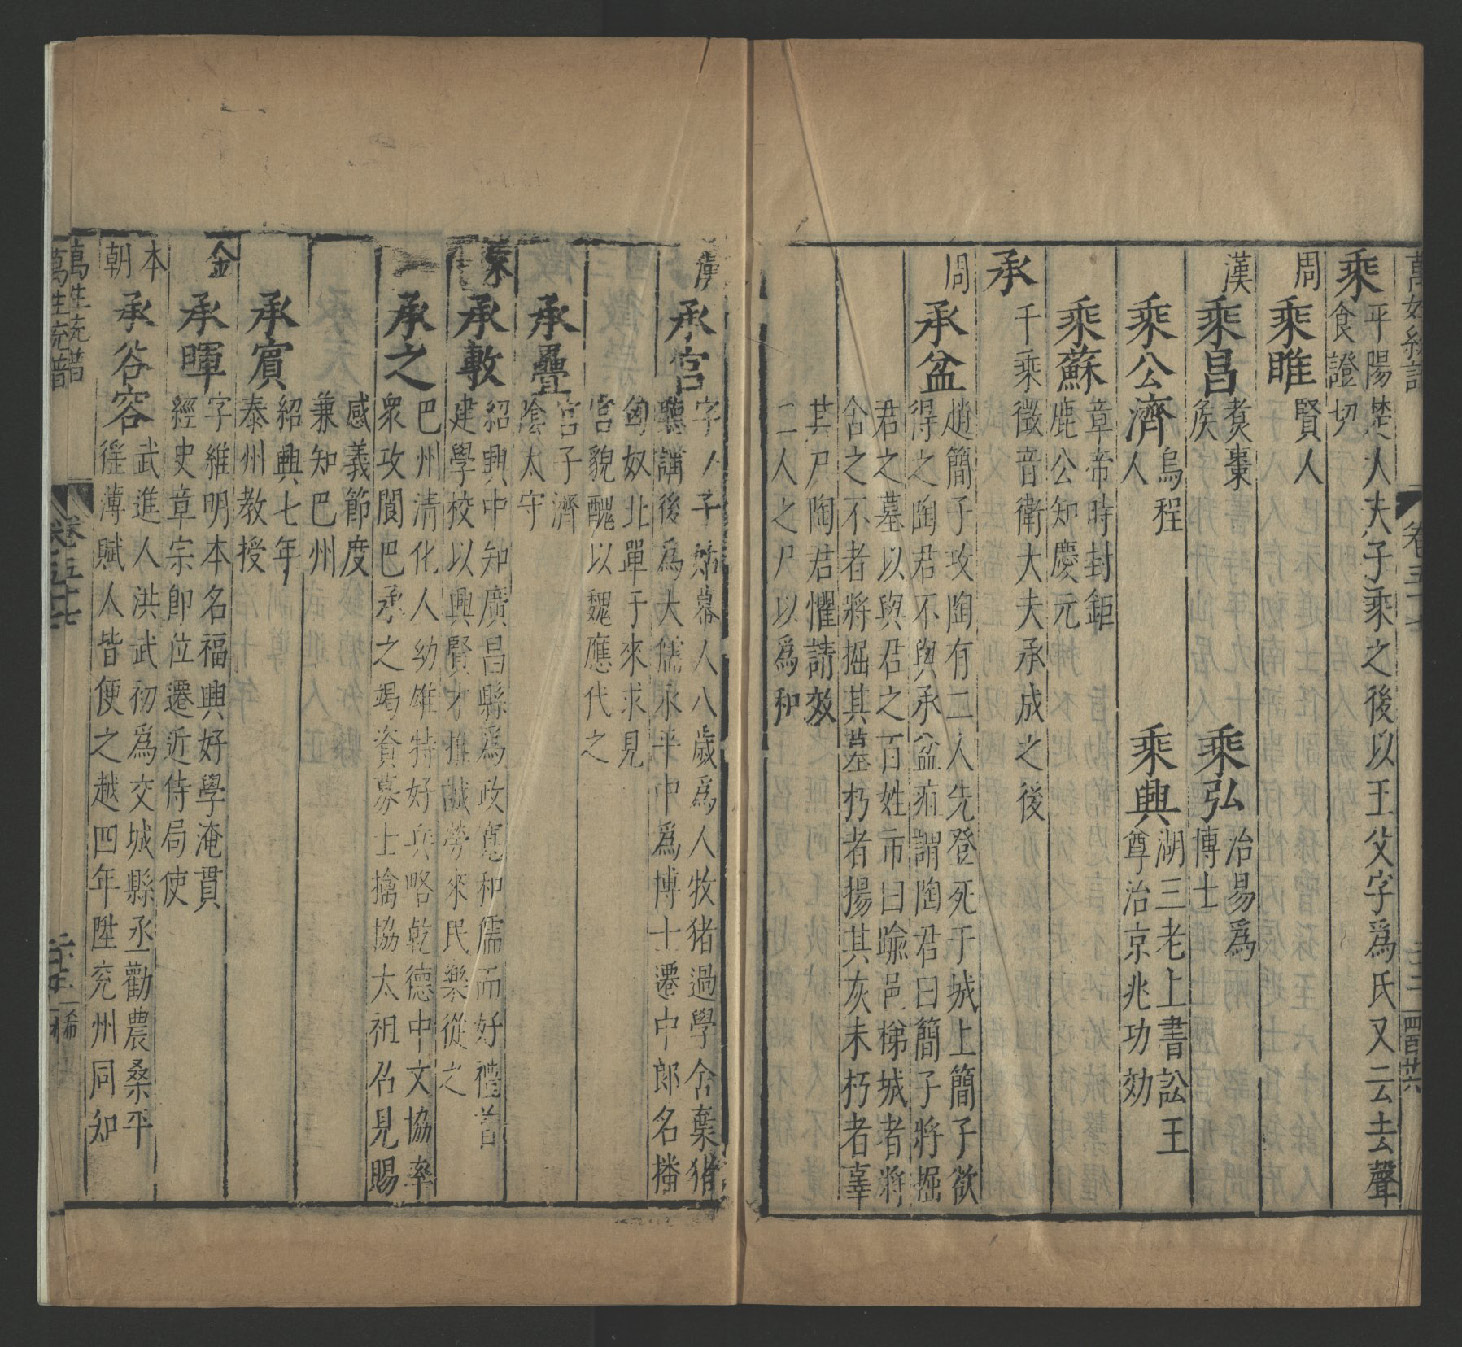 萬姓統譜 卷五十七 三二 四百廿六
乘 平陽楚人夫子乘之後以王父字爲氏又云去聲
食證切
周 乘睢 賢人
漢 乘昌 煑棗
侯
乘弘 治易爲
博士
乘公濟 烏程
人
乘興 湖三老上書訟王
尊治京兆功効
乘蘇 章帝時封鉅
鹿公知慶元
承 千乘徵音衛大夫承成之後
周 承盆 趙簡子攻陶有二人先登死于城上簡子欲
得之陶君不與承盆疽謂陶君曰簡子將掘
君之墓以與君之百姓市曰踰邑梯城者將
舍之不者將掘其墓朽者揚其灰未朽者辜
其尸陶君懼請效
二人之尸以爲和
漢 承宮 字少子姑幕人八歲爲人牧猪過學舍棄猪
聽講後爲大儒永平中爲博士遷中郎名播
匈奴北單于來求見
宮貌醜以魏應代之
承疊 宮子濟
陰太守
宋 承斁 紹興中知廣昌縣爲政寬和儒而好禮首
建學校以興賢才推誠勞來民樂從之
承之 巴州清化人幼雄特好兵略乾德中文協率
衆攻閬巴承之竭資募士擒協太祖召見賜
感義節度
兼知巴州
承賓 紹興七年
泰州教授
金 承暉 字維明本名福興好學淹貫
經史章宗卽位遷近侍局使
本朝 承谷容 武進人洪武初爲交城縣丞勸農桑平
徭薄賦人皆便之越四年陞兖州同知
萬姓統譜 卷五十七